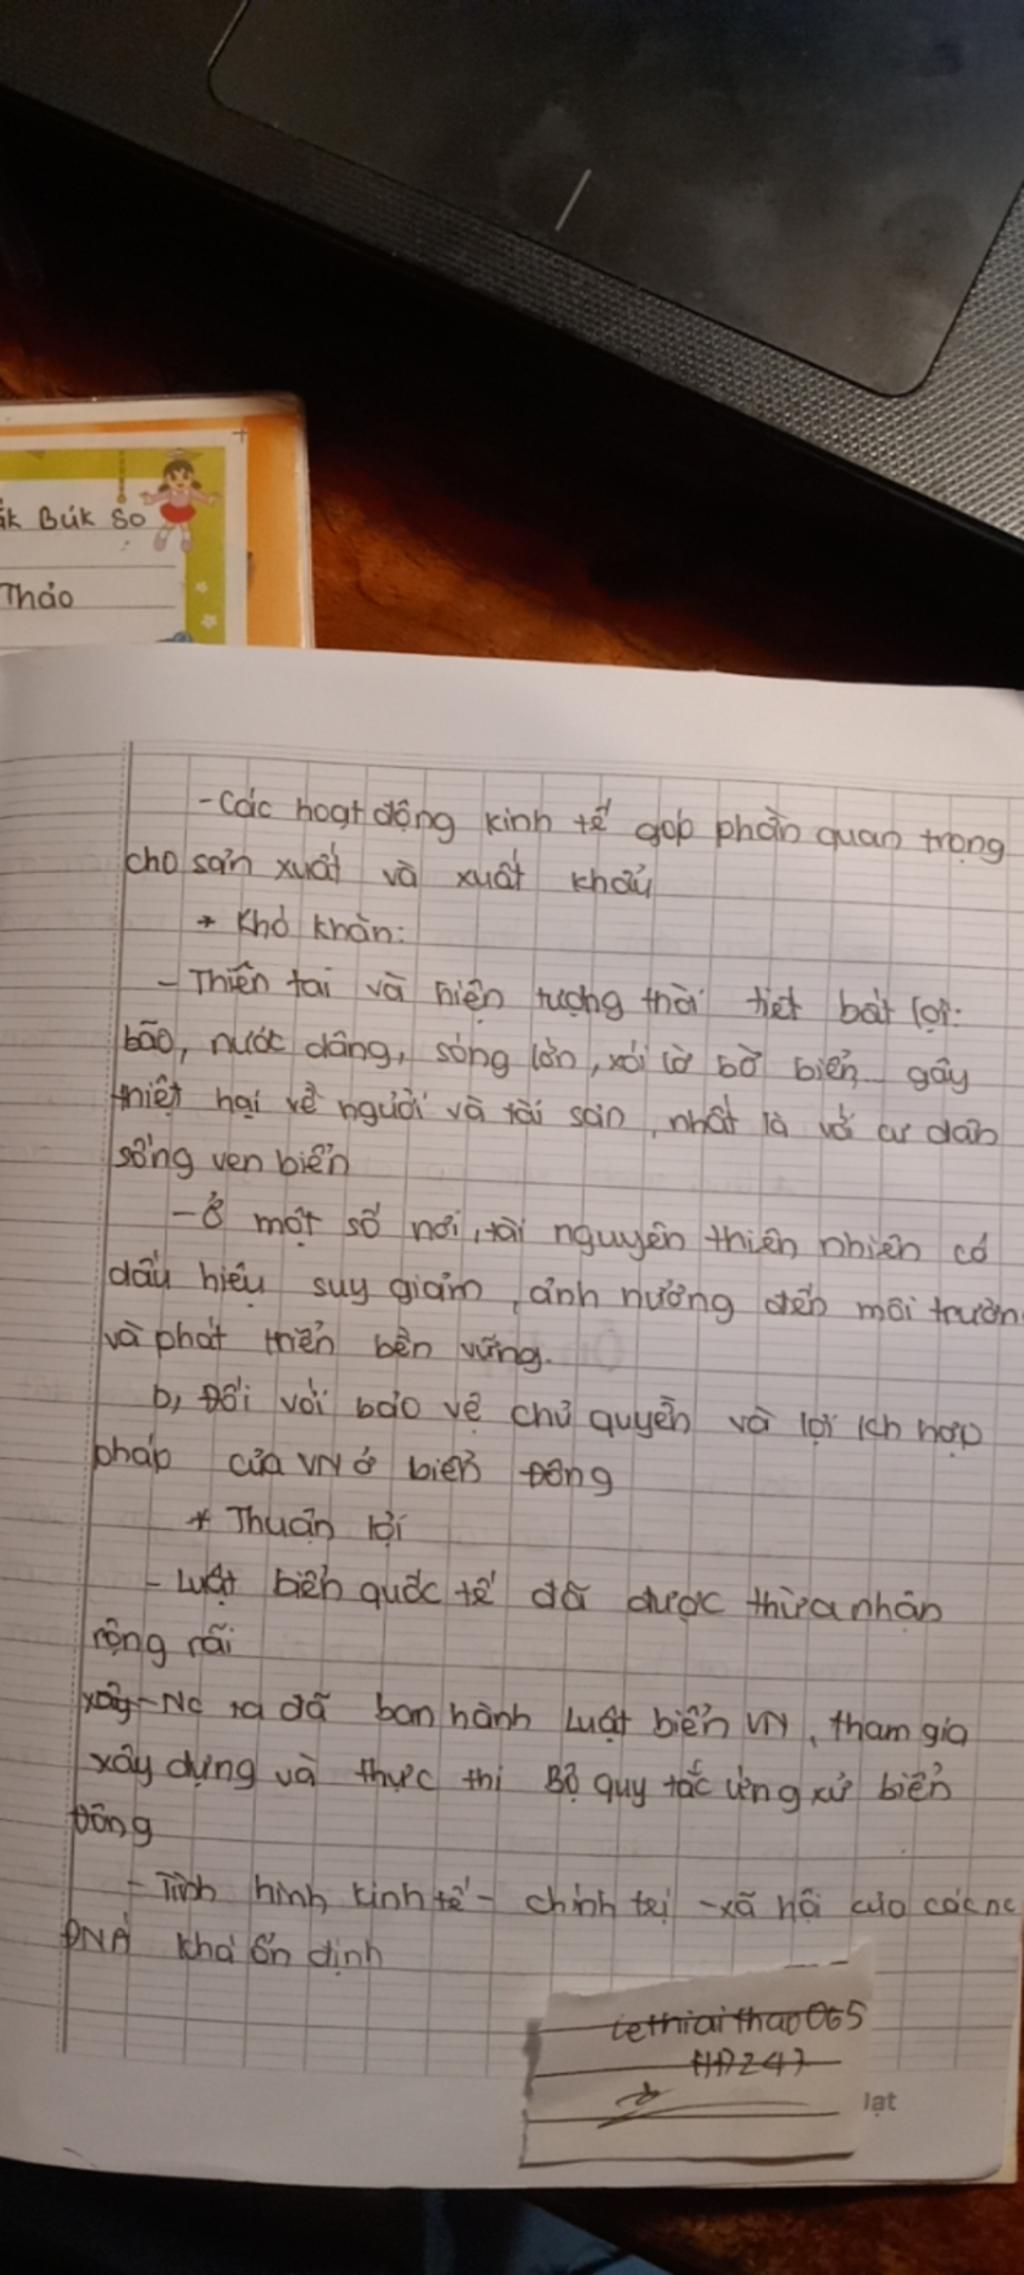 ắk Búk So
Thảo
- Các hoạt động kinh tế góp phần quan trọng
cho sản xuất và xuất khẩu
* Khó khăn:
- Thiên tai và hiện tượng thời tiết bất lợi:
bão, nước dâng, sóng lớn, xói lở bờ biển... gây
thiệt hại về người và tài sản, nhất là với cư dân
sống ven biển
- Ở một số nơi, tài nguyên thiên nhiên có
dấu hiệu suy giảm, ảnh hưởng đến môi trườn
và phát triển bền vững.
b, Đối với bảo vệ chủ quyền và lợi ích hợp
pháp của VN ở biển Đông
* Thuận lợi
- Luật biển quốc tế đã được thừa nhận
rộng rãi
- Nc ta đã ban hành Luật biển VN, tham gia
xây dựng và thực thi Bộ quy tắc ứng xử biển
Đông
- Tình hình kinh tế - chính trị - xã hội của các nc
ĐNÁ khá ổn định
lethiaithao065
HD247
lạt